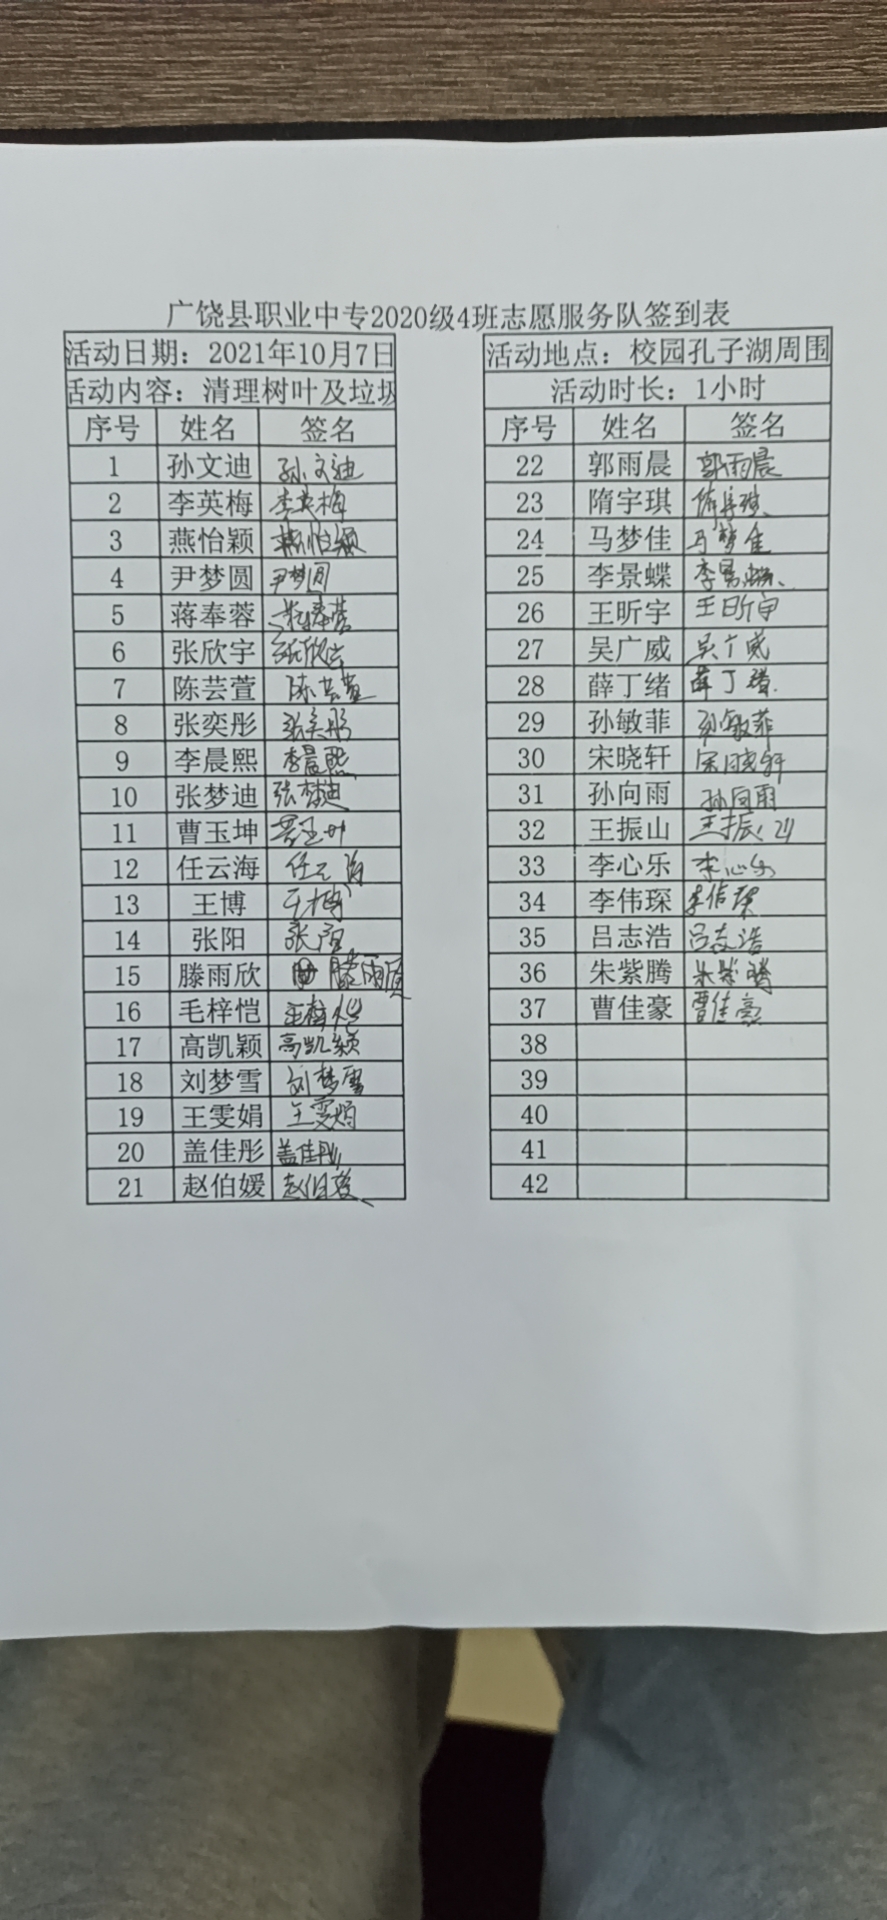 广饶县职业中专2020级4班志愿服务队签到表
活动日期：2021年10月7日
活动内容：清理树叶及垃圾
序号 姓名 签名
1 孙文迪 孙文迪
2 李英梅 李英梅
3 燕怡颖 燕怡颖
4 尹梦圆 尹梦圆
5 蒋奉蓉
6 张欣宇 张欣宇
7 陈芸萱 陈芸萱
8 张奕彤 张奕彤
9 李晨熙 李晨熙
10 张梦迪 张梦迪
11 曹玉坤 曹玉坤
12 任云海 任云海
13 王博 王博
14 张阳 张阳
15 滕雨欣 滕雨欣
16 毛梓恺 毛梓恺
17 高凯颖 高凯颖
18 刘梦雪 刘梦雪
19 王雯娟 王雯娟
20 盖佳彤 盖佳彤
21 赵伯媛 赵伯媛
活动地点：校园孔子湖周围
活动时长：1小时
序号 姓名 签名
22 郭雨晨 郭雨晨
23 隋宇琪 隋宇琪
24 马梦佳 马梦佳
25 李景蝶 李景蝶
26 王昕宇 王昕宇
27 吴广威 吴广威
28 薛丁绪 薛丁绪
29 孙敏菲 孙敏菲
30 宋晓轩 宋晓轩
31 孙向雨 孙向雨
32 王振山 王振山
33 李心乐 李心乐
34 李伟琛 李伟琛
35 吕志浩 吕志浩
36 朱紫腾 朱紫腾
37 曹佳豪 曹佳豪
38
39
40
41
42